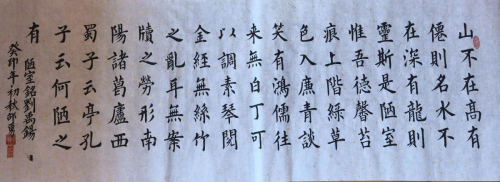 山不在高有
僊則名水不
在深有龍則
靈斯是陋室
惟吾德馨苔
痕上階綠草
色入廉青談
笑有鴻儒往
来無白丁可
以調素琴閱
金經無絲竹
之亂耳無案
牘之勞形南
陽諸葛廬西
蜀子云亭孔
子云何陋之
有
陋室銘劉禹錫
癸卯年初秋